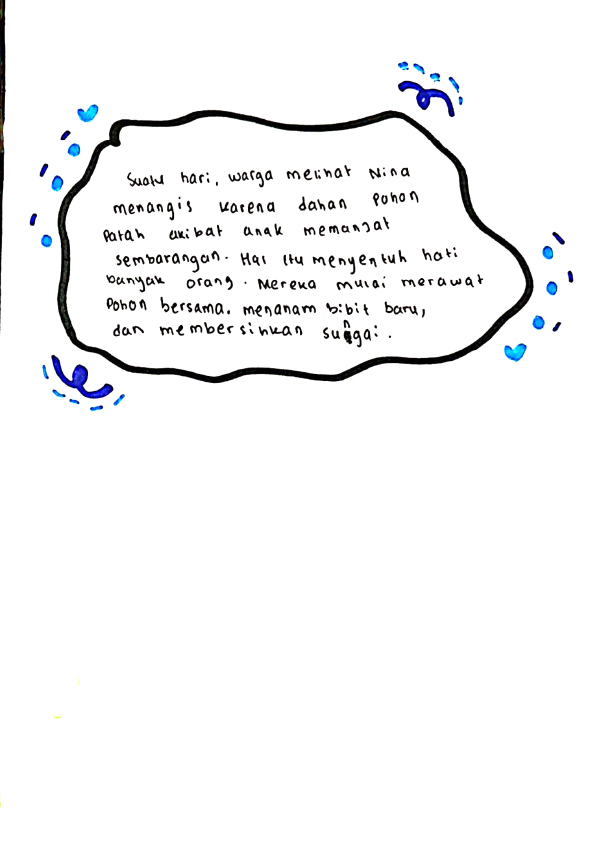 Suatu hari, warga melihat Nina
menangis karena dahan pohon
patah akibat anak memanjat
sembarangan. Hal itu menyentuh hati
banyak orang. Mereka mulai merawat
pohon bersama. menanam bibit baru,
dan membersihkan sungai.